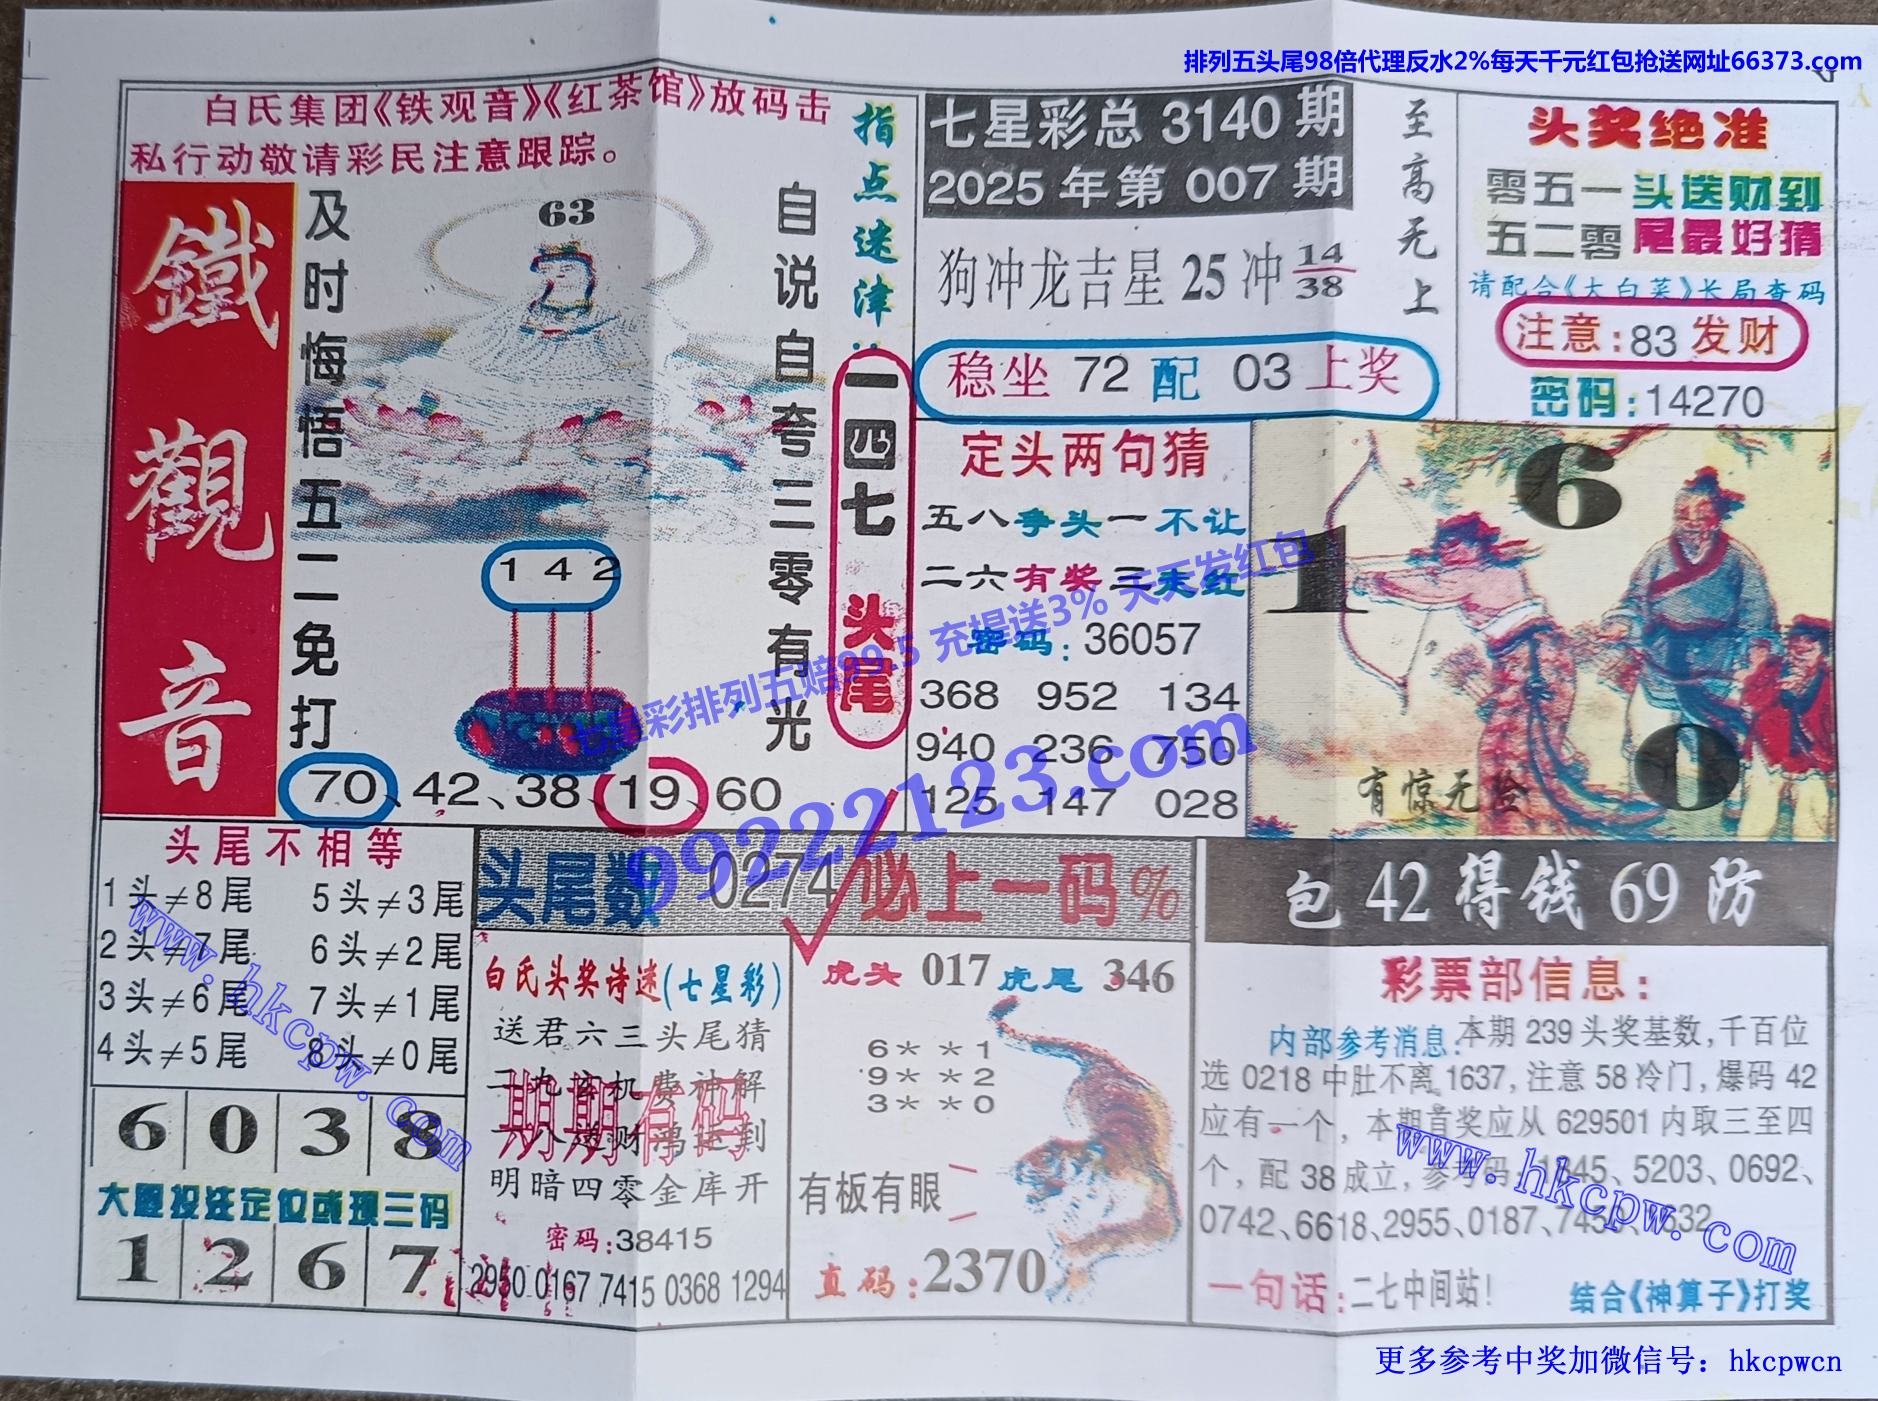 排列五头尾98倍代理反水2%每天千元红包抢送网址66373.com
白氏集团《铁观音》《红茶馆》放码击
私行动敬请彩民注意跟踪。
鐵觀音
及时悔悟五二免打
63
自说自夸三零有光
142
70、42、38、19、60
指点迷津:
一四七头尾
七星彩总 3140 期
2025 年第 007 期
狗冲龙吉星 25 冲 14/38
稳坐 72 配 03 上奖
至高无上
头奖绝准
零五一头送财到
五二零尾最好猜
请配合《大白菜》长局查码
注意:83发财
密码:14270
定头两句猜
五八争头一不让
二六有奖三未红
密码:36057
368 952 134
940 236 750
125 147 028
1
6
0
有惊无险
七星彩排列五赔99.5 充提送3% 天天发红包
99222123.com
头尾不相等
1头≠8尾 5头≠3尾
2头≠7尾 6头≠2尾
3头≠6尾 7头≠1尾
4头≠5尾 8头≠0尾
www.hkcpw.com
6 0 3 8
大圆投注定位或现三码
1 2 6 7
头尾数 0274 必上一码%
白氏头奖诗迷(七星彩)
送君六三头尾猜
二九玄机费神解
八送财鸿运到
明暗四零金库开
期期有码
密码:38415
2950 0167 7415 0368 1294
虎头 017 虎尾 346
6＊ ＊1
9＊ ＊2
3＊ ＊0
有板有眼
直码:2370
包 42 得钱 69 防
彩票部信息:
内部参考消息:本期 239 头奖基数,千百位
选 0218 中肚不离 1637,注意 58 冷门,爆码 42
应有一个,本期首奖应从 629501 内取三至四
个,配 38 成立,参考码:1845、5203、0692、
0742、6618、2955、0187、745、632
www.hkcpw.com
一句话:二七中间站!
结合《神算子》打奖
更多参考中奖加微信号：hkcpwcn